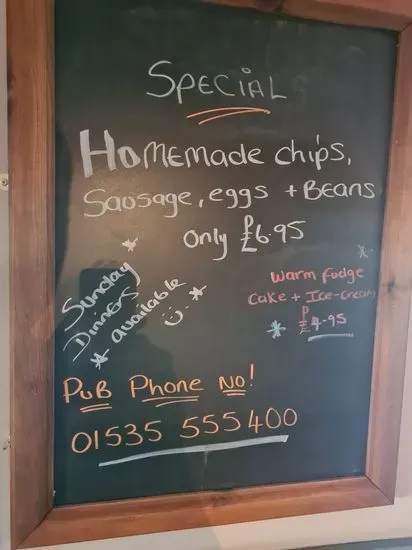 SPECIAL
HOMEMADE chips,
Saosage, eggs + BEANS
only £6.95
Sunday
Dinners
available
warm fudge
cake + Ice-cream
£4.95
PUB PHONE NO!
01535 555400